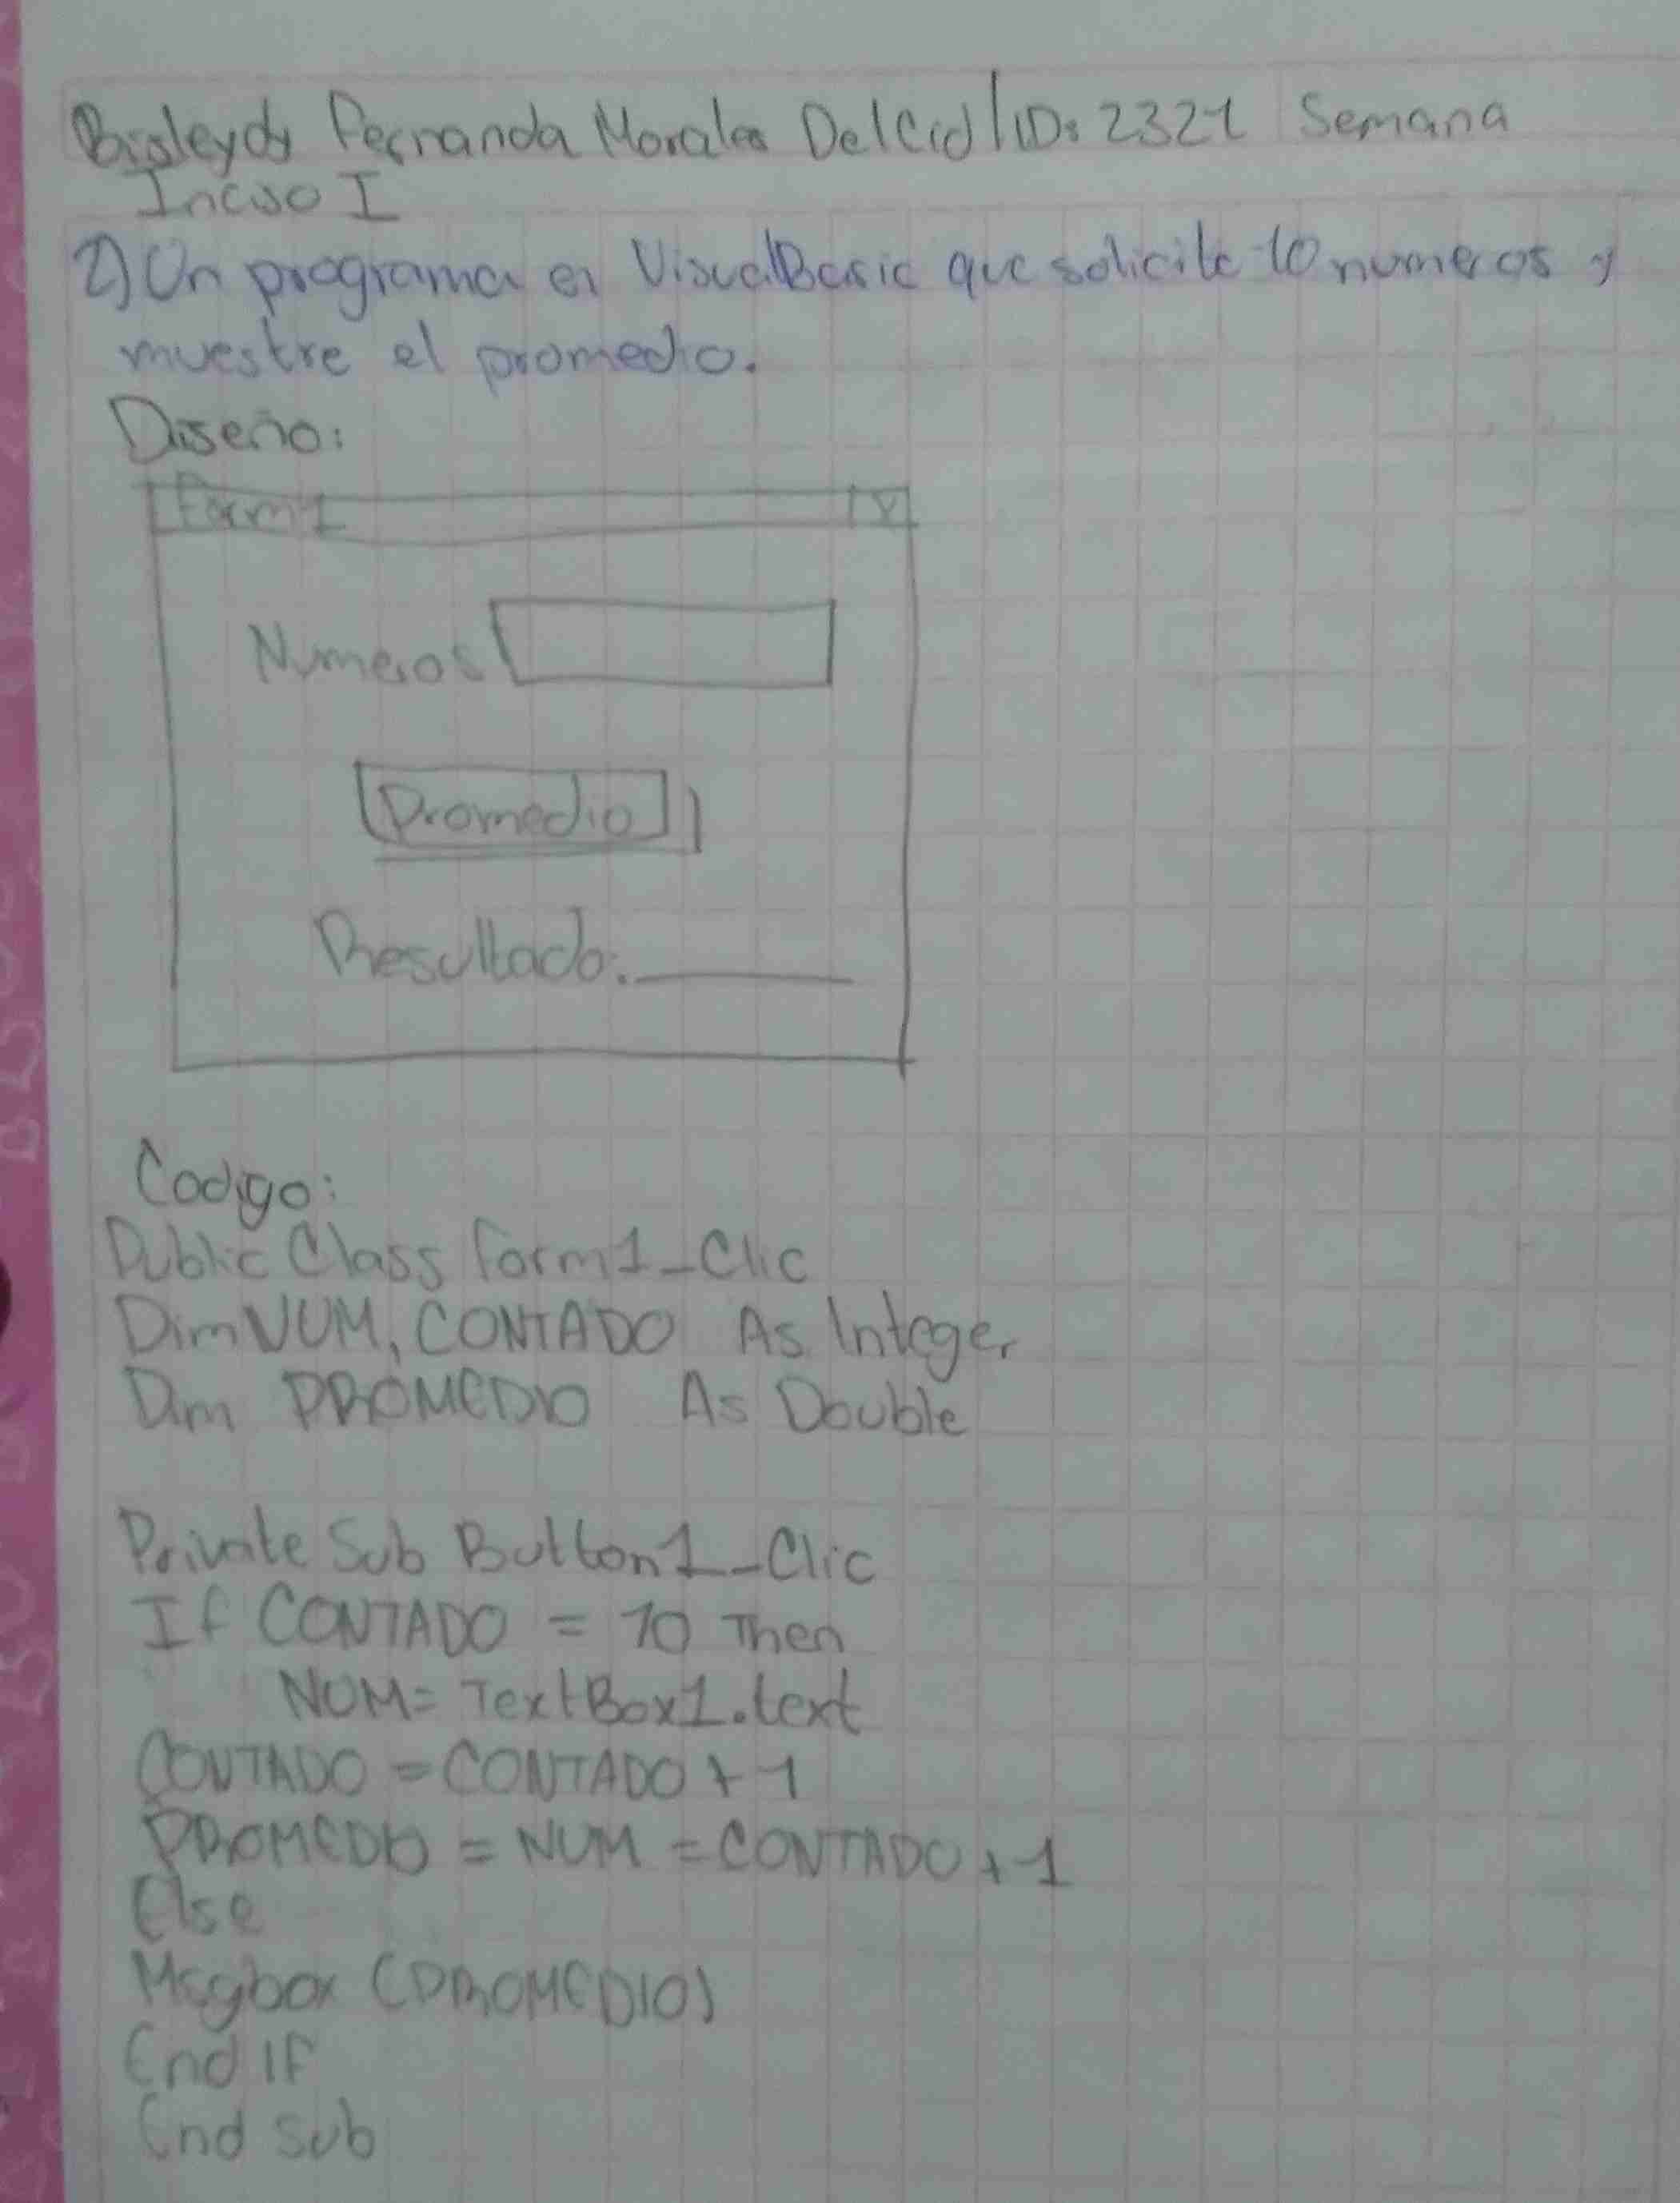 Bisleydy Fernanda Morales Del Cid / ID: 2321 Semana
Inciso I
2) Un programa en VisualBasic que solicite 10 numeros y
muestre el promedio.
Diseño:
Form1 X
Numeros
Promedio
Resultado:
Codigo:
Public Class Form1_Clic
Dim NUM, CONTADO As Integer
Dim PROMEDIO As Double
Private Sub Button1_Clic
If CONTADO = 10 Then
NUM= TextBox1.text
CONTADO = CONTADO + 1
PROMEDIO = NUM = CONTADO + 1
Else
Msgbox (PROMEDIO)
End If
End Sub